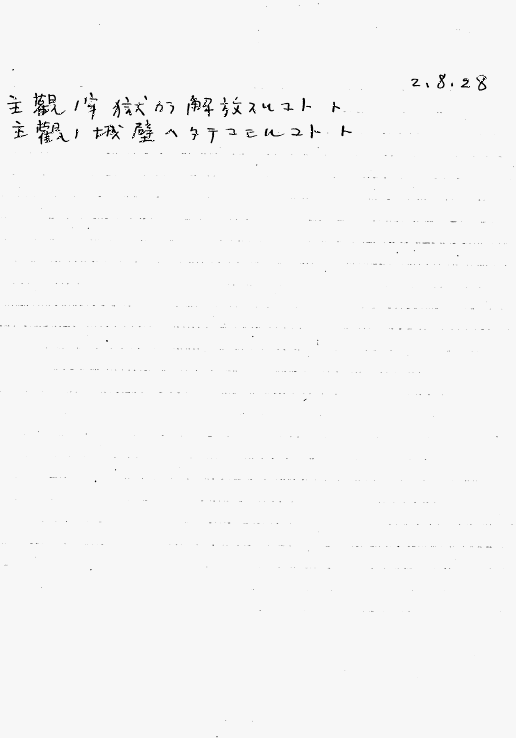 2.8.28
主觀ノ牢獄カラ解放スルコトト
主觀ノ城壁ヘタテコモルコトト